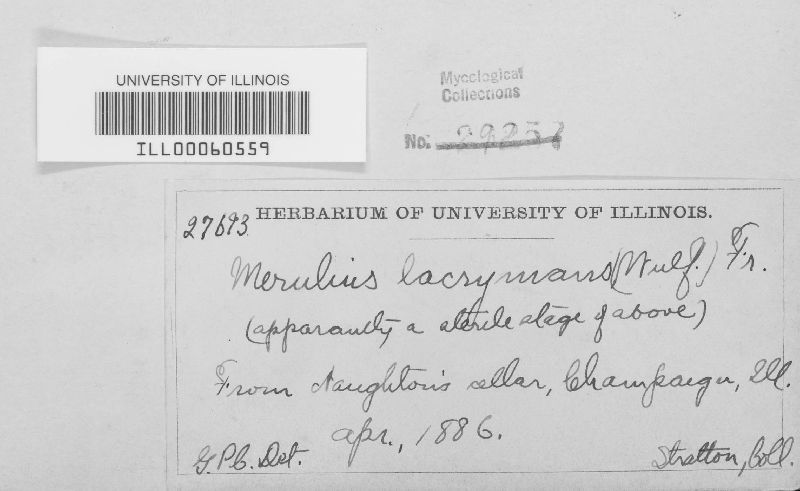 UNIVERSITY OF ILLINOIS
ILL00060559
Mycological
Collections
No.
27693
HERBARIUM OF UNIVERSITY OF ILLINOIS.
Merulius lacrymans (Wulf.) Fr.
(apparantly a sterile stage of above)
From Naughton's cellar, Champaign, Ill.
Apr., 1886.
G.P.C. Det.
Stratton, Coll.